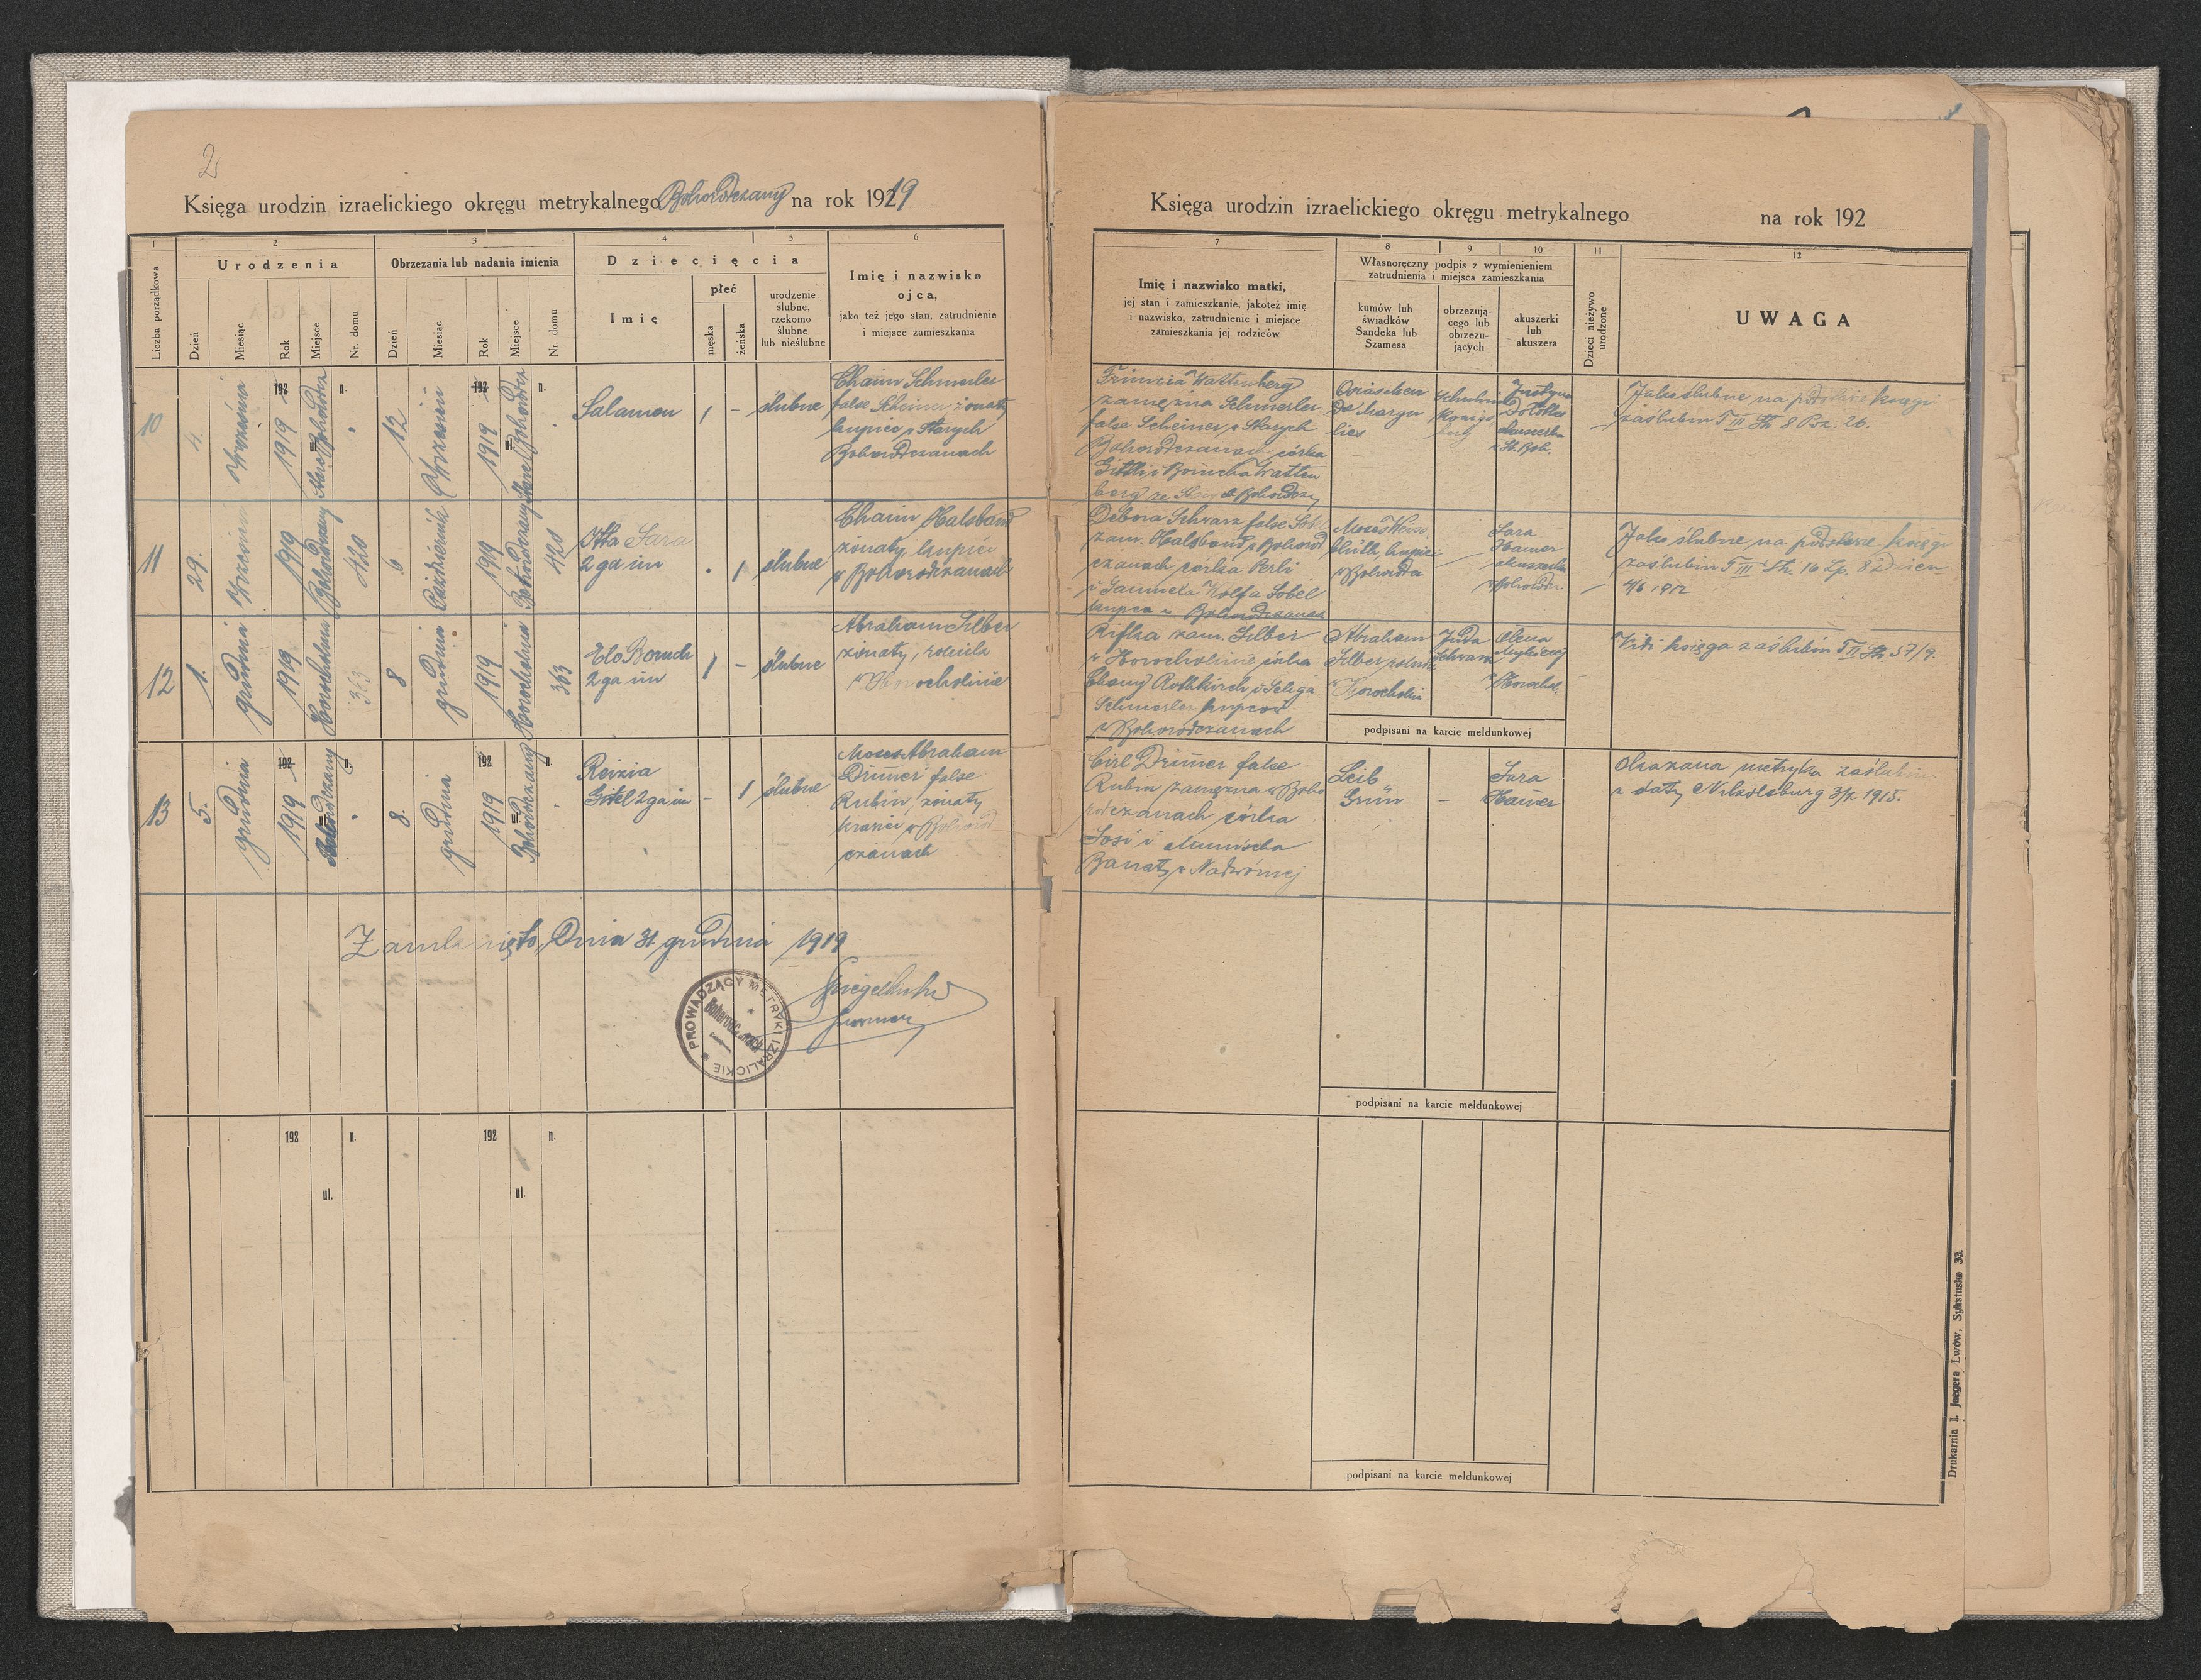 2
Księga urodzin izraelickiego okręgu metrykalnego Bohorodczany na rok 1919
1 2 3 4 5 6
Liczba porządkowa
Urodzenia
Obrzezania lub nadania imienia
Dziecięcia
Imię i nazwisko
ojca,
jako też jego stan, zatrudnienie
i miejsce zamieszkania
Dzień Miesiąc Rok Miejsce Nr. domu
Dzień Miesiąc Rok Miejsce Nr. domu
Imię
płeć
męska żeńska
urodzenie
ślubne,
rzekomo
ślubne
lub nieślubne
10 4. Września 1919 Stare Bohorodcz 12 Wrzesień 1919 Stare Bohorodcz
Salamon 1 – ślubne
Chaim Schmerler
false Scheiner żonaty
kupiec w Starych
Bohorodczanach
11 29. Wrzesień 1919 Bohorodczany 420 6 Październik 1919 Bohorodczany 420
Etta Sara
2ga im 1 ślubne
Chaim Halsband
żonaty, kupiec
w Bohorodczanach
12 1. grudnia 1919 Horocholina 363 8 grudnia 1919 Horocholina 363
Elo Boruch
2ga im 1 – ślubne
Abraham Silber
żonaty, rolnik
w Horocholinie
13 5. grudnia 192 1919 Bohorodczany 8. grudnia 192 1919 Bohorodczany
Reizia
Gitel 2ga im – 1 ślubne
Moses Abraham
Drimer false
Rubin, żonaty
krawiec w Bohorod
czanach
Zamknięto, Dnia 31. grudnia 1919
PROWADZĄCY METRYKI IZRALICKIE
192 n. 192 n.
ul. ul.
Księga urodzin izraelickiego okręgu metrykalnego na rok 192
7 8 9 10 11 12
Imię i nazwisko matki,
jej stan i zamieszkanie, jakoteż imię
i nazwisko, zatrudnienie i miejsce
zamieszkania jej rodziców
Własnoręczny podpis z wymienieniem
zatrudnienia i miejsca zamieszkania
kumów lub
świadków
Sandeka lub
Szamesa
obrzezują-
cego lub
obrzezu-
jących
akuszerki
lub
akuszera
Dzieci nieżywo
urodzone
UWAGA
zamężna Schmerler
false Scheiner w Starych
Bohorodczanach córka
Jako ślubne na podstawie księgi
zaślubin T III Str 8 Poz. 26.
Debora Schwarz false
zam. Halsband w Bohorod
czanach córka Perli
i Samuela Wolfa Sobel
kupca w Bohorodczanach
Moses Weiss
Sara
Hamer
akuszerka
Jako ślubne na podstawie księgi
zaślubin T III Str. 16 Lp. 8 Dzien
4/6 1912
Rifka zam. Silber
w Horocholinie córka
Chany Rothkirch i Seliga
Schmerler kupców
w Bohorodczanach
Abraham
Silber rolnik
Horocholin
Juda
Schwarz
Olena
Horochol.
Vide księga zaślubin T II Str. 57/9.
podpisani na karcie meldunkowej
Cirl Drimer false
Rubin zamężna w Boho
rodczanach córka
Sosi i
w Nadwórnej
Leib
Grün
–
Sara
Hamer
Okazana metryka zaślubin
z daty Nikolsburg 3/x 1915.
podpisani na karcie meldunkowej
podpisani na karcie meldunkowej
Drukarnia I. Jaegera Lwów, Sykstuska 33.